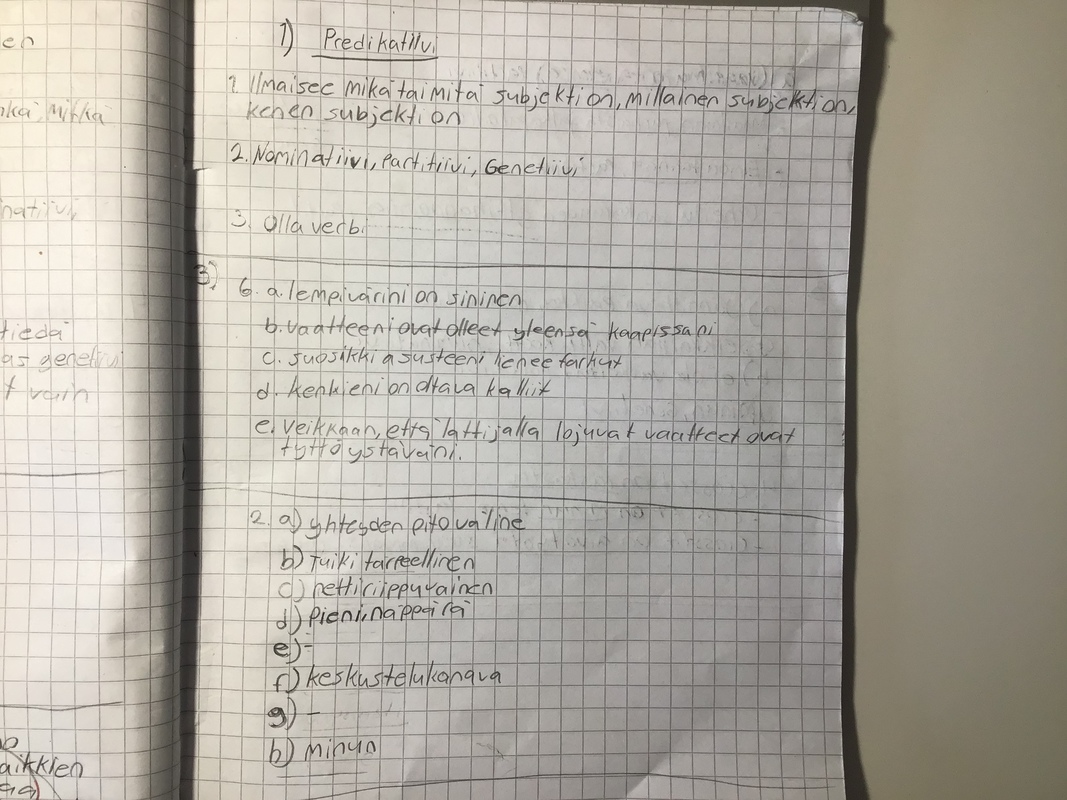 en
mikä
1) Predikatiivi
1. Ilmaisee mikä tai mitä subjektion, millainen subjektion,
kenen subjektion
2. Nominatiivi, Partitiivi, Genetiivi
3. Olla verbi
3)
6. a. lempivärini on sininen
b. vaatteeni ovat olleet yleensä kaapissani
c. suosikki asusteeni lienee farkut
d. kenkieni on oltava kalliit
e. Veikkaan, että lattijalla lojuvat vaatteet ovat
tyttöystäväni.
tiedä
vain
2. a) yhteyden pito väline
b) Tuiki tarpeellinen
c) nettiriippuvainen
d) Pieni, näppärä
e) -
f) keskustelukanava
g) -
h) minun
aikkien